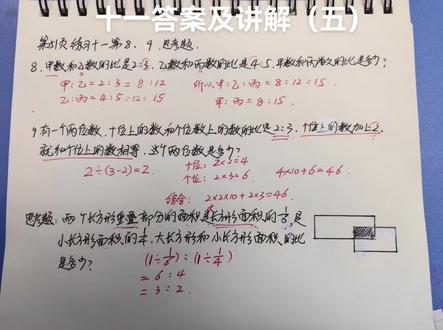 十一答案及讲解（五）
第51页 练习十一第8、9.思考题.
8.甲数和乙数的比是2:3.乙数和丙数的比是4:5.甲数和丙数的比是多少?
甲:乙=2:3=8:12 所以甲:乙:丙=8:12:15.
乙:丙=4:5=12:15 甲:丙=8:15.
9.有一个两位数,十位上的数和个位上的数的比是2:3.十位上的数加上2,
就和个位上的数相等.这个两位数是多少?
2÷(3-2)=2. 十位:2×2=4
个位:2×3=6 4×10+6=46.
综合: 2×2×10+2×3=46.
思考题:两个长方形重叠部分的面积是大长方形面积的1/6,是
小长方形面积的1/4.大长方形和小长方形面积的比
是多少?
(1÷1/6):(1÷1/4)
=6:4
=3:2.